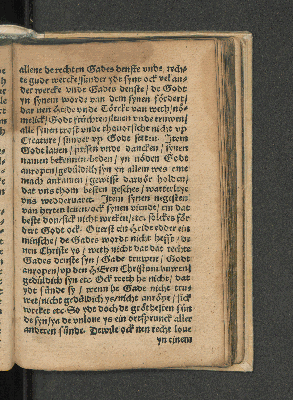 allene de rechten Gades denste vnde rech-
te gude wercke / sünder ydt synt ock vel an-
der wercke vnde Gades denste / de Godt
yn synem worde van dem synen fördert /
dar nen Heide vnde Törcke van weth / nö-
melick / Godt früchten / leuen vnde truwen /
alle synen trost vnde thouorsicht nicht vp
Creature / sunder vp Godt setten. Item
Godt lauen / prisen vnde dancken / synen
namen bekennen / beden / yn nöden Godt
anropen / gedüldich syn yn allem wes eme
mach ankamen / gewisse daruör holden /
dat vns thom besten geschee / watterleye
vns wedderuaret. Item synen negesten
van herten leuen / ock synen viendt / en dat
beste don / sick nicht wreken / etc. solckes för-
dert Godt ock. Ouerst ein Heide edder ein
minsche / de Gades wordt nicht hefft / de
nen Christe ys / weth nicht dat dat rechte
Gades denste syn / Gade truwen / Godt
anropen / vp den HEren Christum
gedüldich syn etc. Ock weth he nicht / dat
ydt sünde sy / wenn he Gade nicht tru-
wet / nicht gedüldich ys / nicht anröpe / sick
wreket etc. So ydt doch de gröthesten sün-
de syn / ya de vnloue ys ein ortsprunck aller
anderen sünde. Dewile ock nen recht loue
yn einem